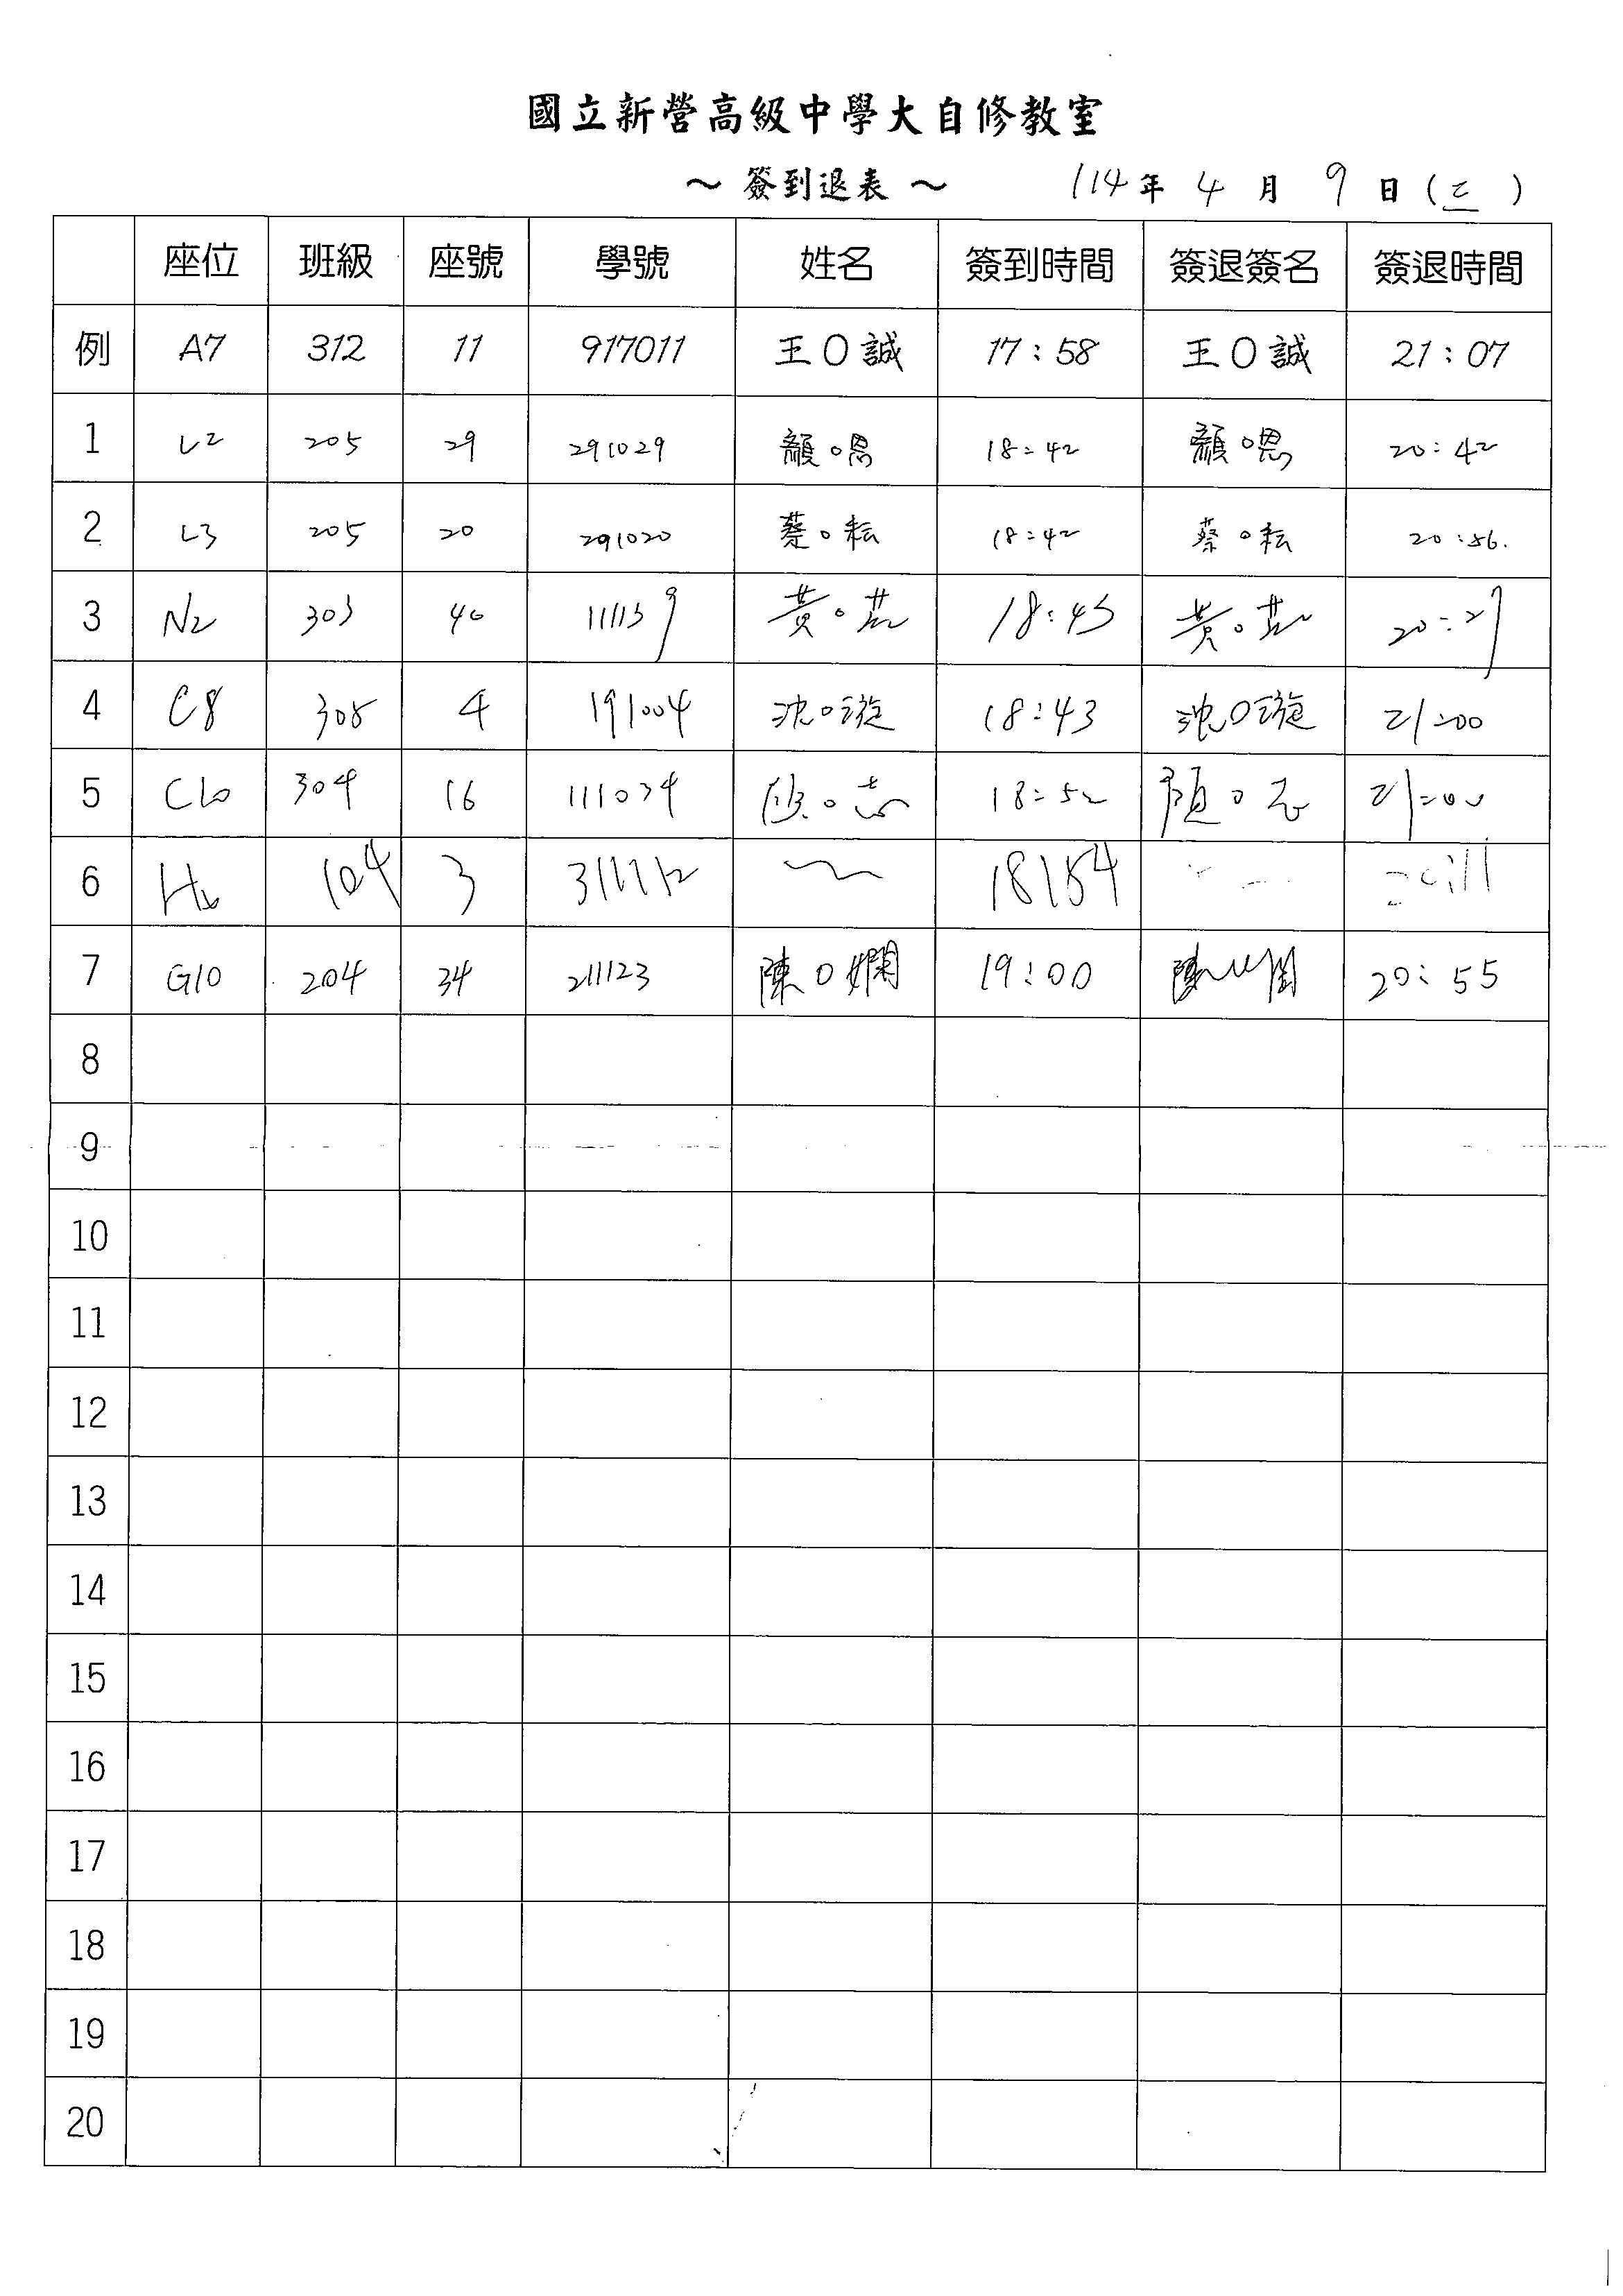 國立新營高級中學大自修教室
～ 簽到退表 ～ 114 年 4 月 9 日 (三)
座位 班級 座號 學號 姓名 簽到時間 簽退簽名 簽退時間
例 A7 312 11 917011 王O誠 17:58 王O誠 21:07
1 L2 205 29 291029 顏O恩 18:42 顏O恩 20:42
2 L3 205 20 291020 蔡O耘 18:42 蔡O耘 20:56.
3 N2 303 40 111139 黃O 18:43 黃O 20:29
4 C8 308 4 191004 沈O璇 18:43 沈O璇 21:00
5 C10 304 16 111034 18:52 21:00
6 104 3 18:54
7 G10 204 34 211123 陳O嫻 19:00 陳 20:55
8
9
10
11
12
13
14
15
16
17
18
19
20